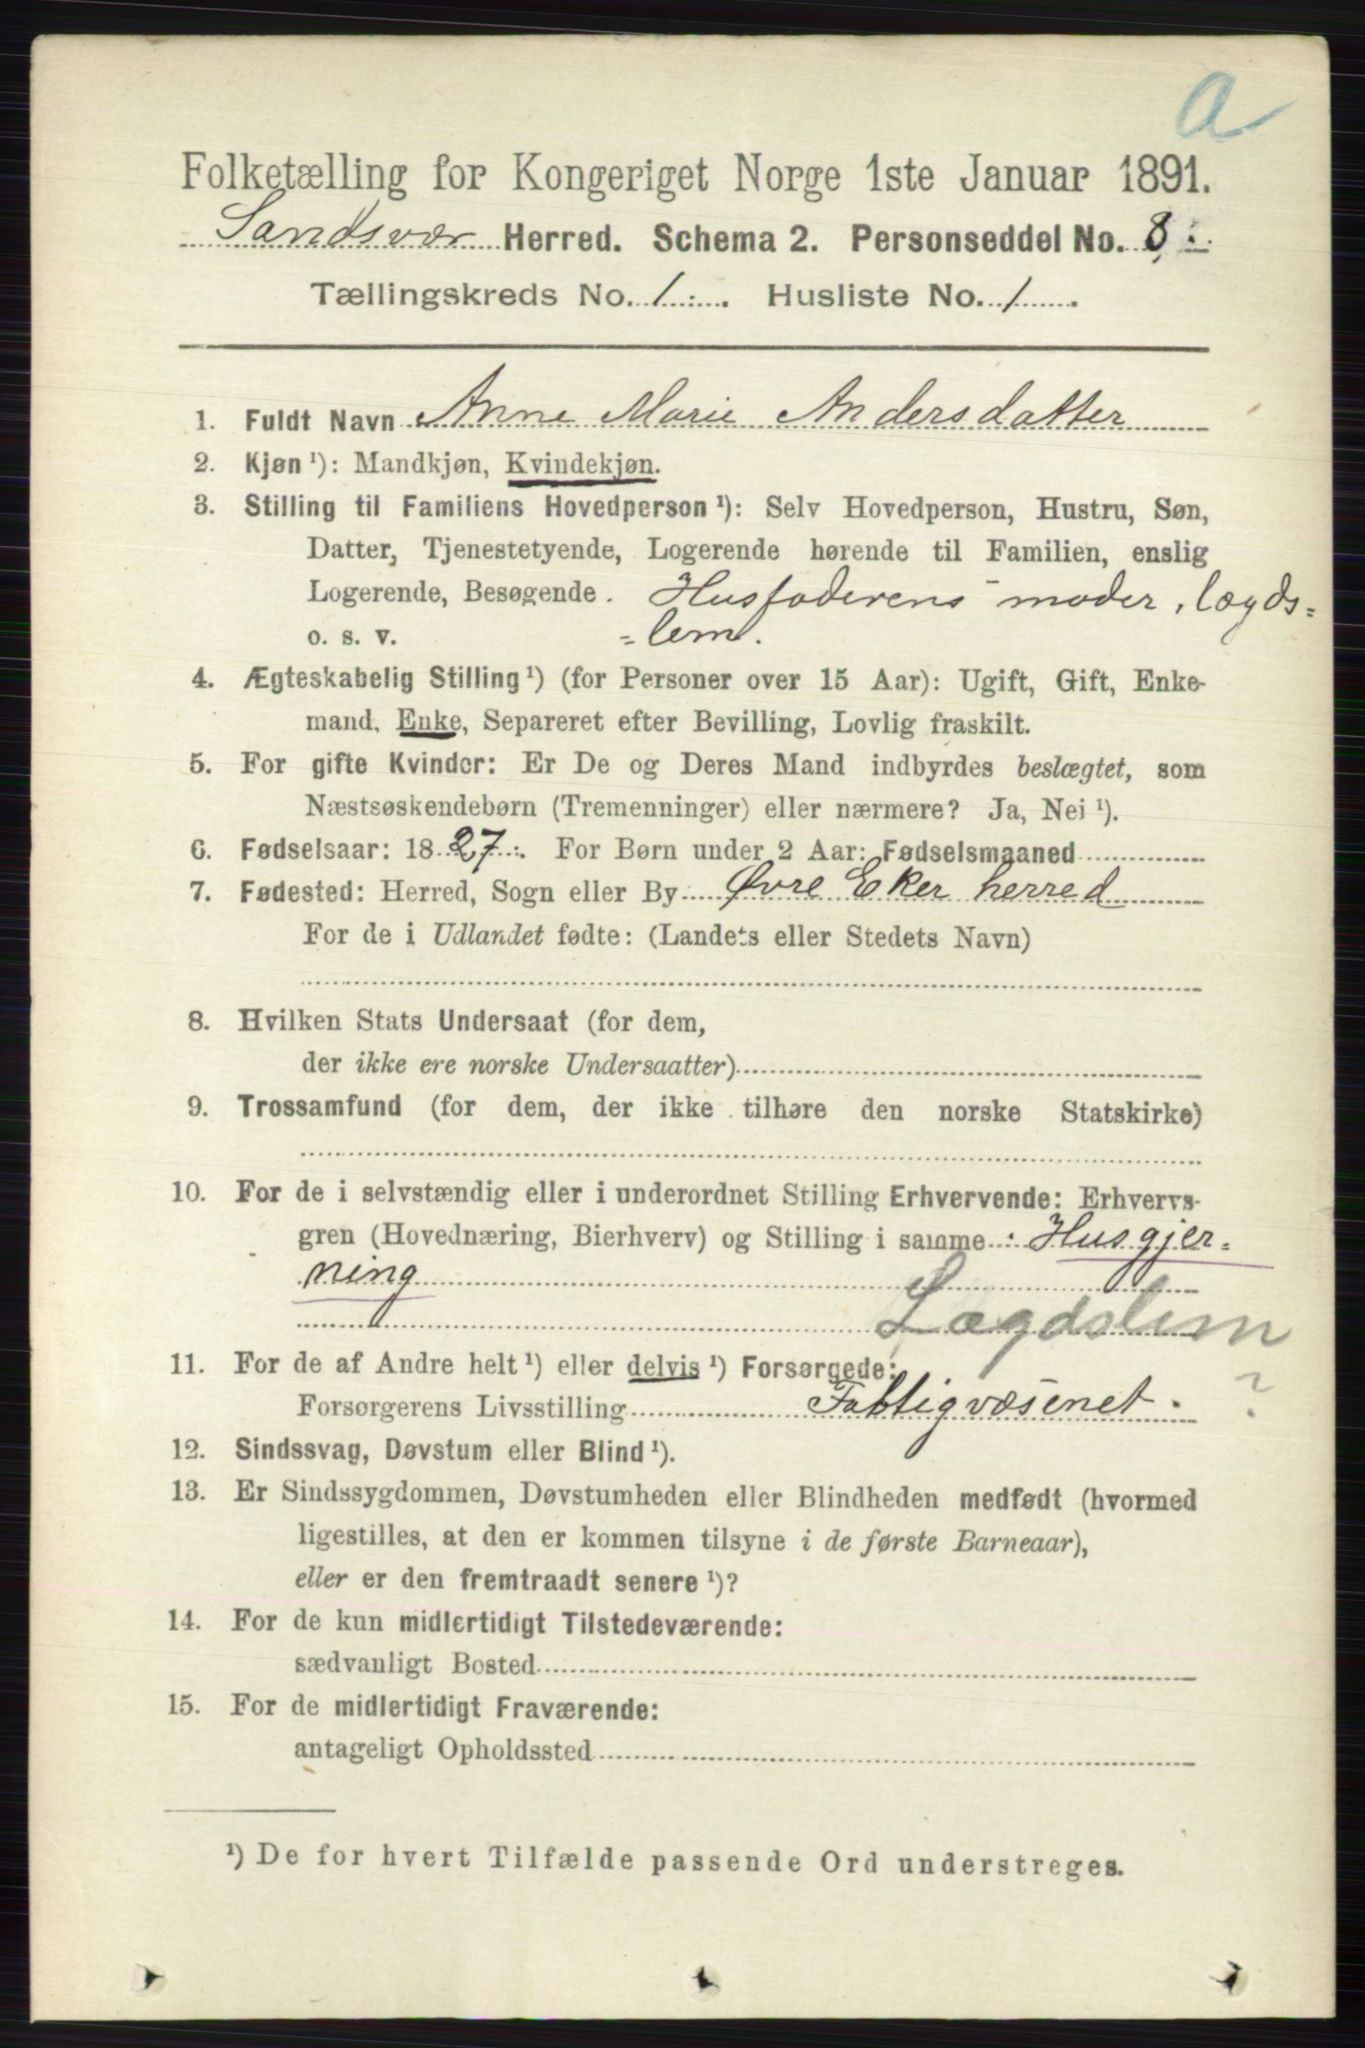 a
Folketælling for Kongeriget Norge 1ste Januar 1891.
Sandsvær Herred. Schema 2. Personseddel No. 8.
Tællingskreds No. 1. Husliste No. 1.
1. Fuldt Navn Anne Marie Andersdatter
2. Kjøn ¹): Mandkjøn, Kvindekjøn.
3. Stilling til Familiens Hovedperson ¹): Selv Hovedperson, Hustru, Søn,
Datter, Tjenestetyende, Logerende hørende til Familien, enslig
Logerende, Besøgende. Husfaderens moder, lægds=
o. s. v. =lem.
4. Ægteskabelig Stilling ¹) (for Personer over 15 Aar): Ugift, Gift, Enke-
mand, Enke, Separeret efter Bevilling, Lovlig fraskilt.
5. For gifte Kvinder: Er De og Deres Mand indbyrdes beslægtet, som
Næstsøskendebørn (Tremenninger) eller nærmere? Ja, Nei ¹).
6. Fødselsaar: 1827. For Børn under 2 Aar: Fødselsmaaned
7. Fødested: Herred, Sogn eller By Øvre Eker herred
For de i Udlandet fødte: (Landets eller Stedets Navn)
8. Hvilken Stats Undersaat (for dem,
der ikke ere norske Undersaatter)
9. Trossamfund (for dem, der ikke tilhøre den norske Statskirke)
10. For de i selvstændig eller i underordnet Stilling Erhvervende: Erhvervs-
gren (Hovednæring, Bierhverv) og Stilling i samme: Husgjer=
ning
Lægdslem
11. For de af Andre helt ¹) eller delvis ¹) Forsørgede:
Forsørgerens Livsstilling Fattigvæsenet. ?
12. Sindssvag, Døvstum eller Blind ¹).
13. Er Sindssygdommen, Døvstumheden eller Blindheden medfødt (hvormed
ligestilles, at den er kommen tilsyne i de første Barneaar),
eller er den fremtraadt senere ¹)?
14. For de kun midlertidigt Tilstedeværende:
sædvanligt Bosted
15. For de midlertidigt Fraværende:
antageligt Opholdssted
¹) De for hvert Tilfælde passende Ord understreges.